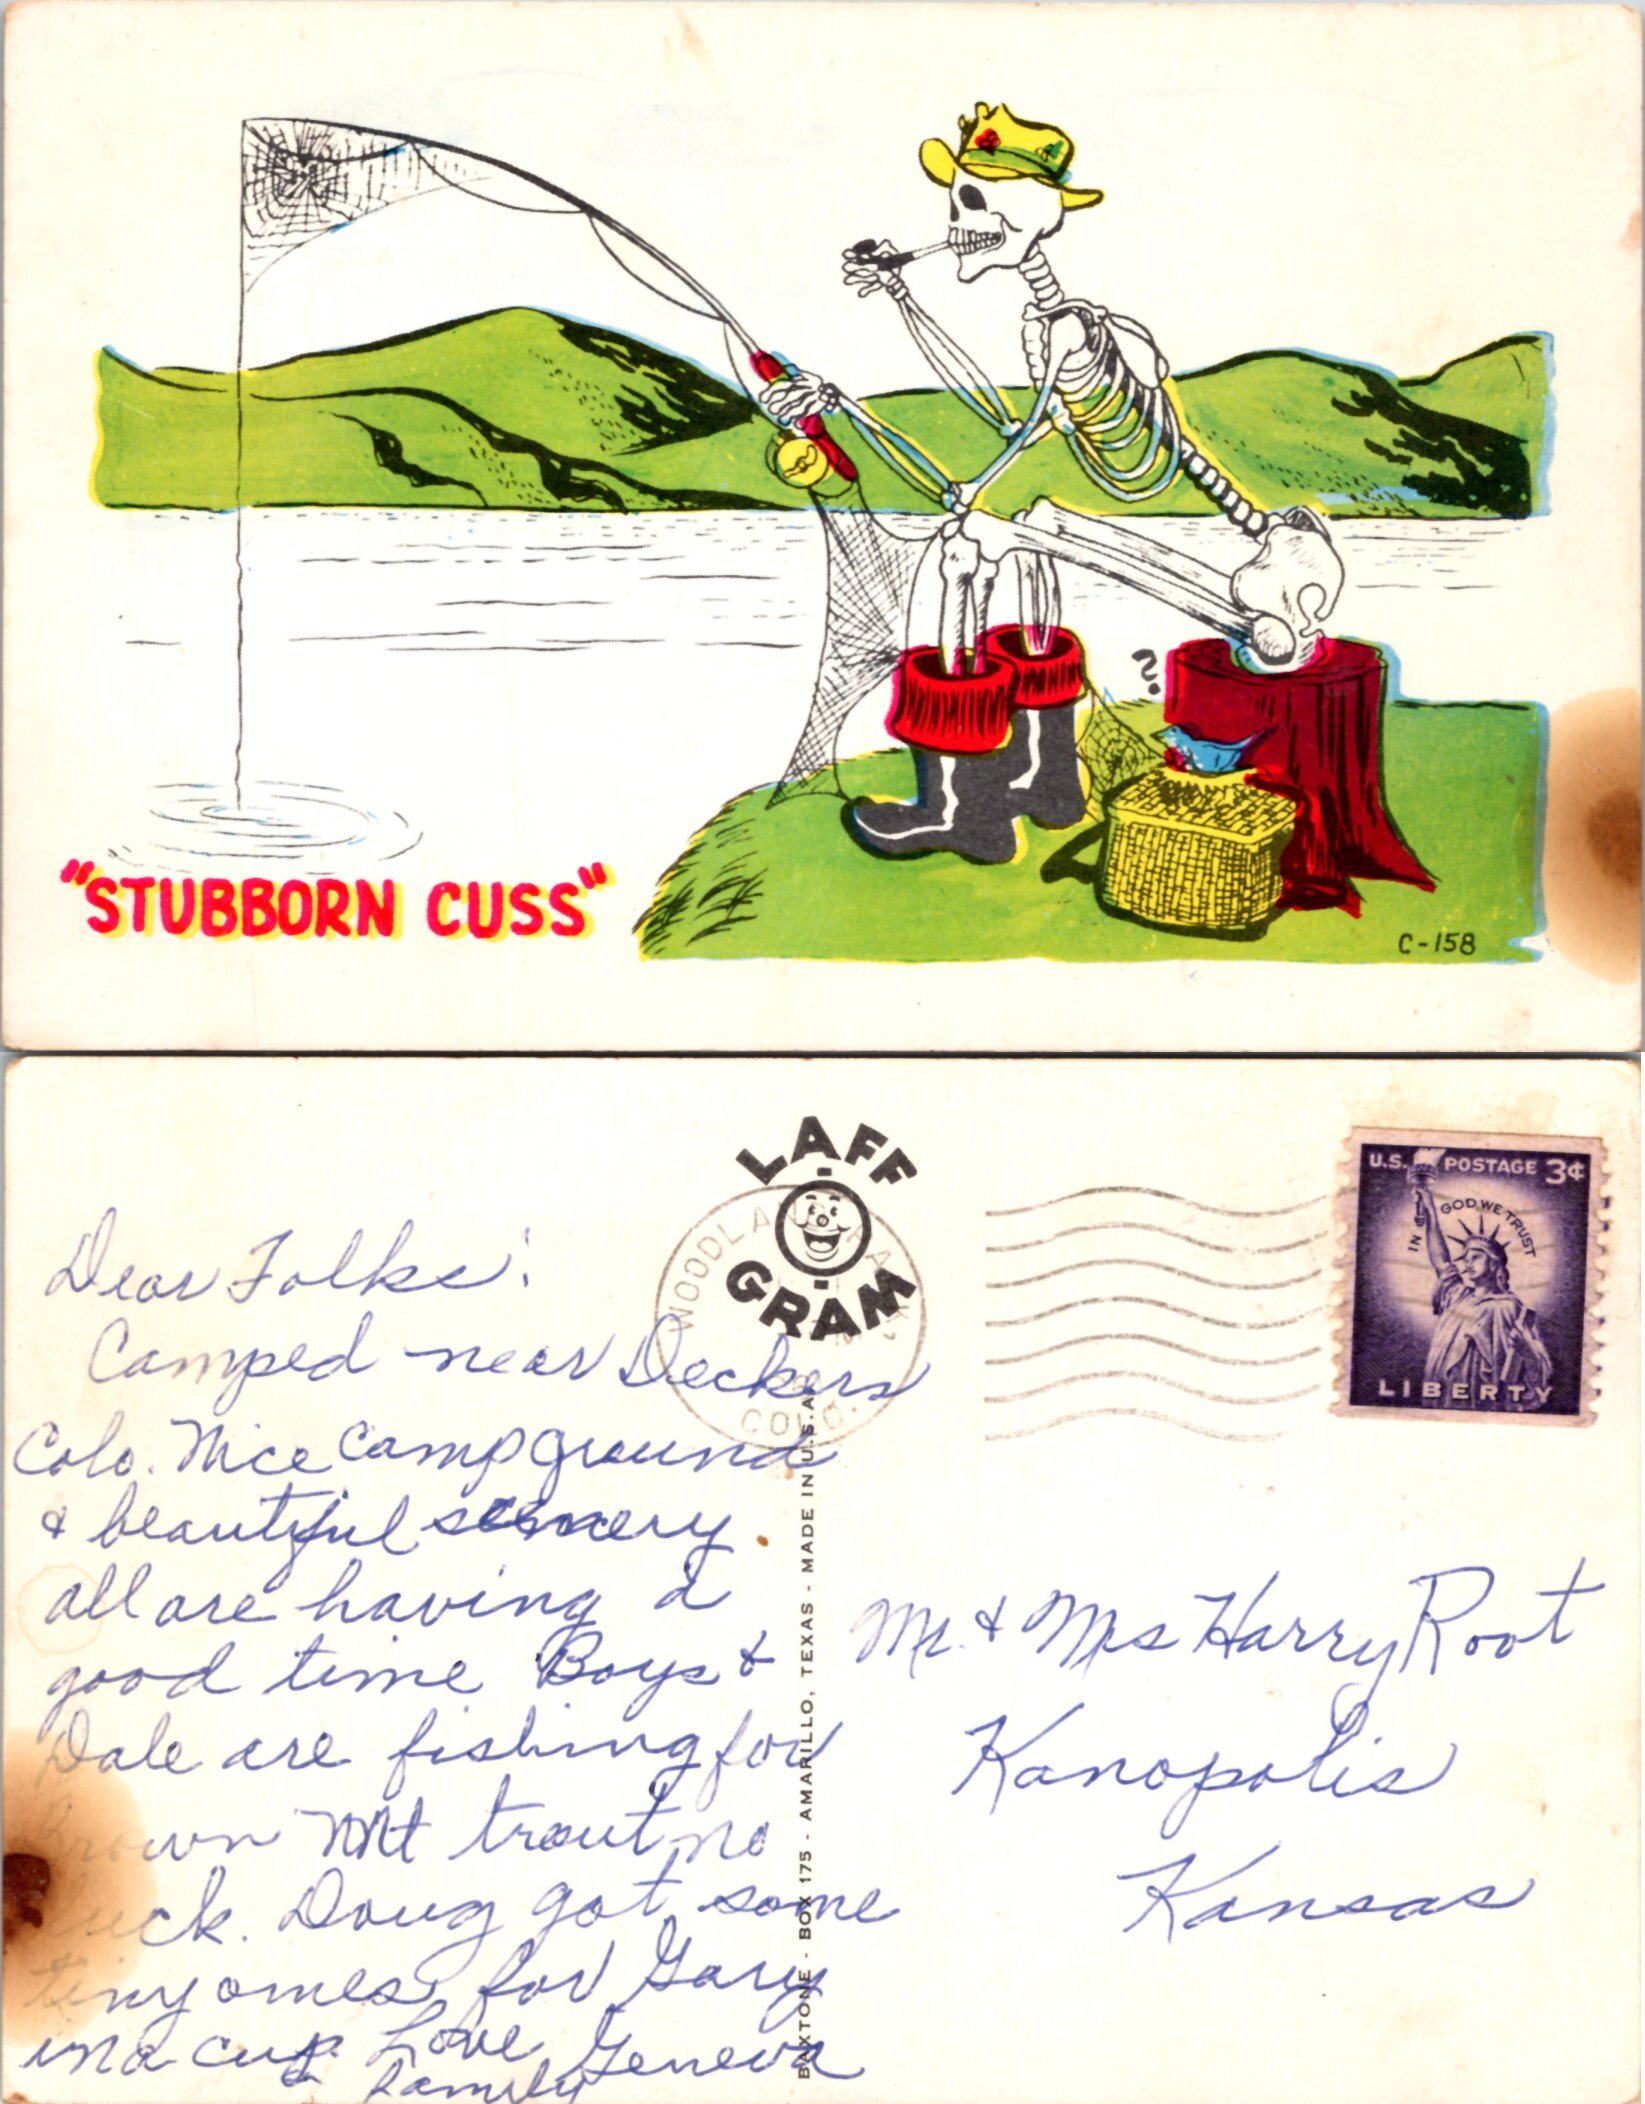 "STUBBORN CUSS"
?
C-158
LAFF
GRAM
WOODLAND PARK
COLO.
U.S. POSTAGE 3¢
IN GOD WE TRUST
LIBERTY
Dear Folks:
Camped near Deckers
Colo. Nice Camp ground
& beautiful scenery
all are having a
good time Boys &
Dale are fishing for
Brown Mt trout no
luck. Doug got some
tiny ones for Gary
in a cup. Love Geneva
& family
BAXTONE - BOX 175 - AMARILLO, TEXAS - MADE IN U.S.A.
Mr. & Mrs Harry Root
Kanopolis
Kansas